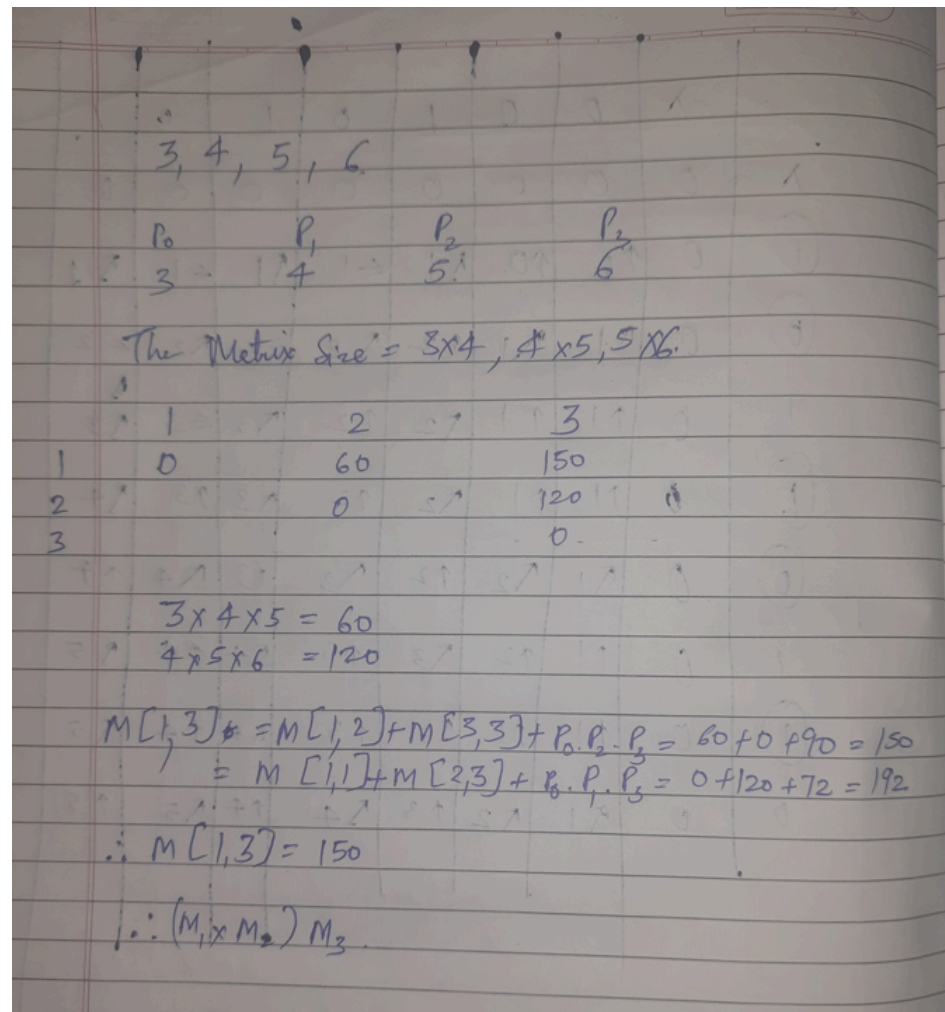 3, 4, 5, 6
P₀ P₁ P₂ P₃
3 4 5 6
The Metrix Size = 3×4, 4×5, 5×6.
1 2 3
1 0 60 150
2 0 120
3 0
3×4×5 = 60
4×5×6 = 120
M[1,3] = M[1,2]+M[3,3]+P₀.P₂.P₃ = 60+0+90 = 150
= M[1,1]+M[2,3]+P₀.P₁.P₃ = 0+120+72 = 192
∴ M[1,3] = 150
∴ (M₁×M₂) M₃